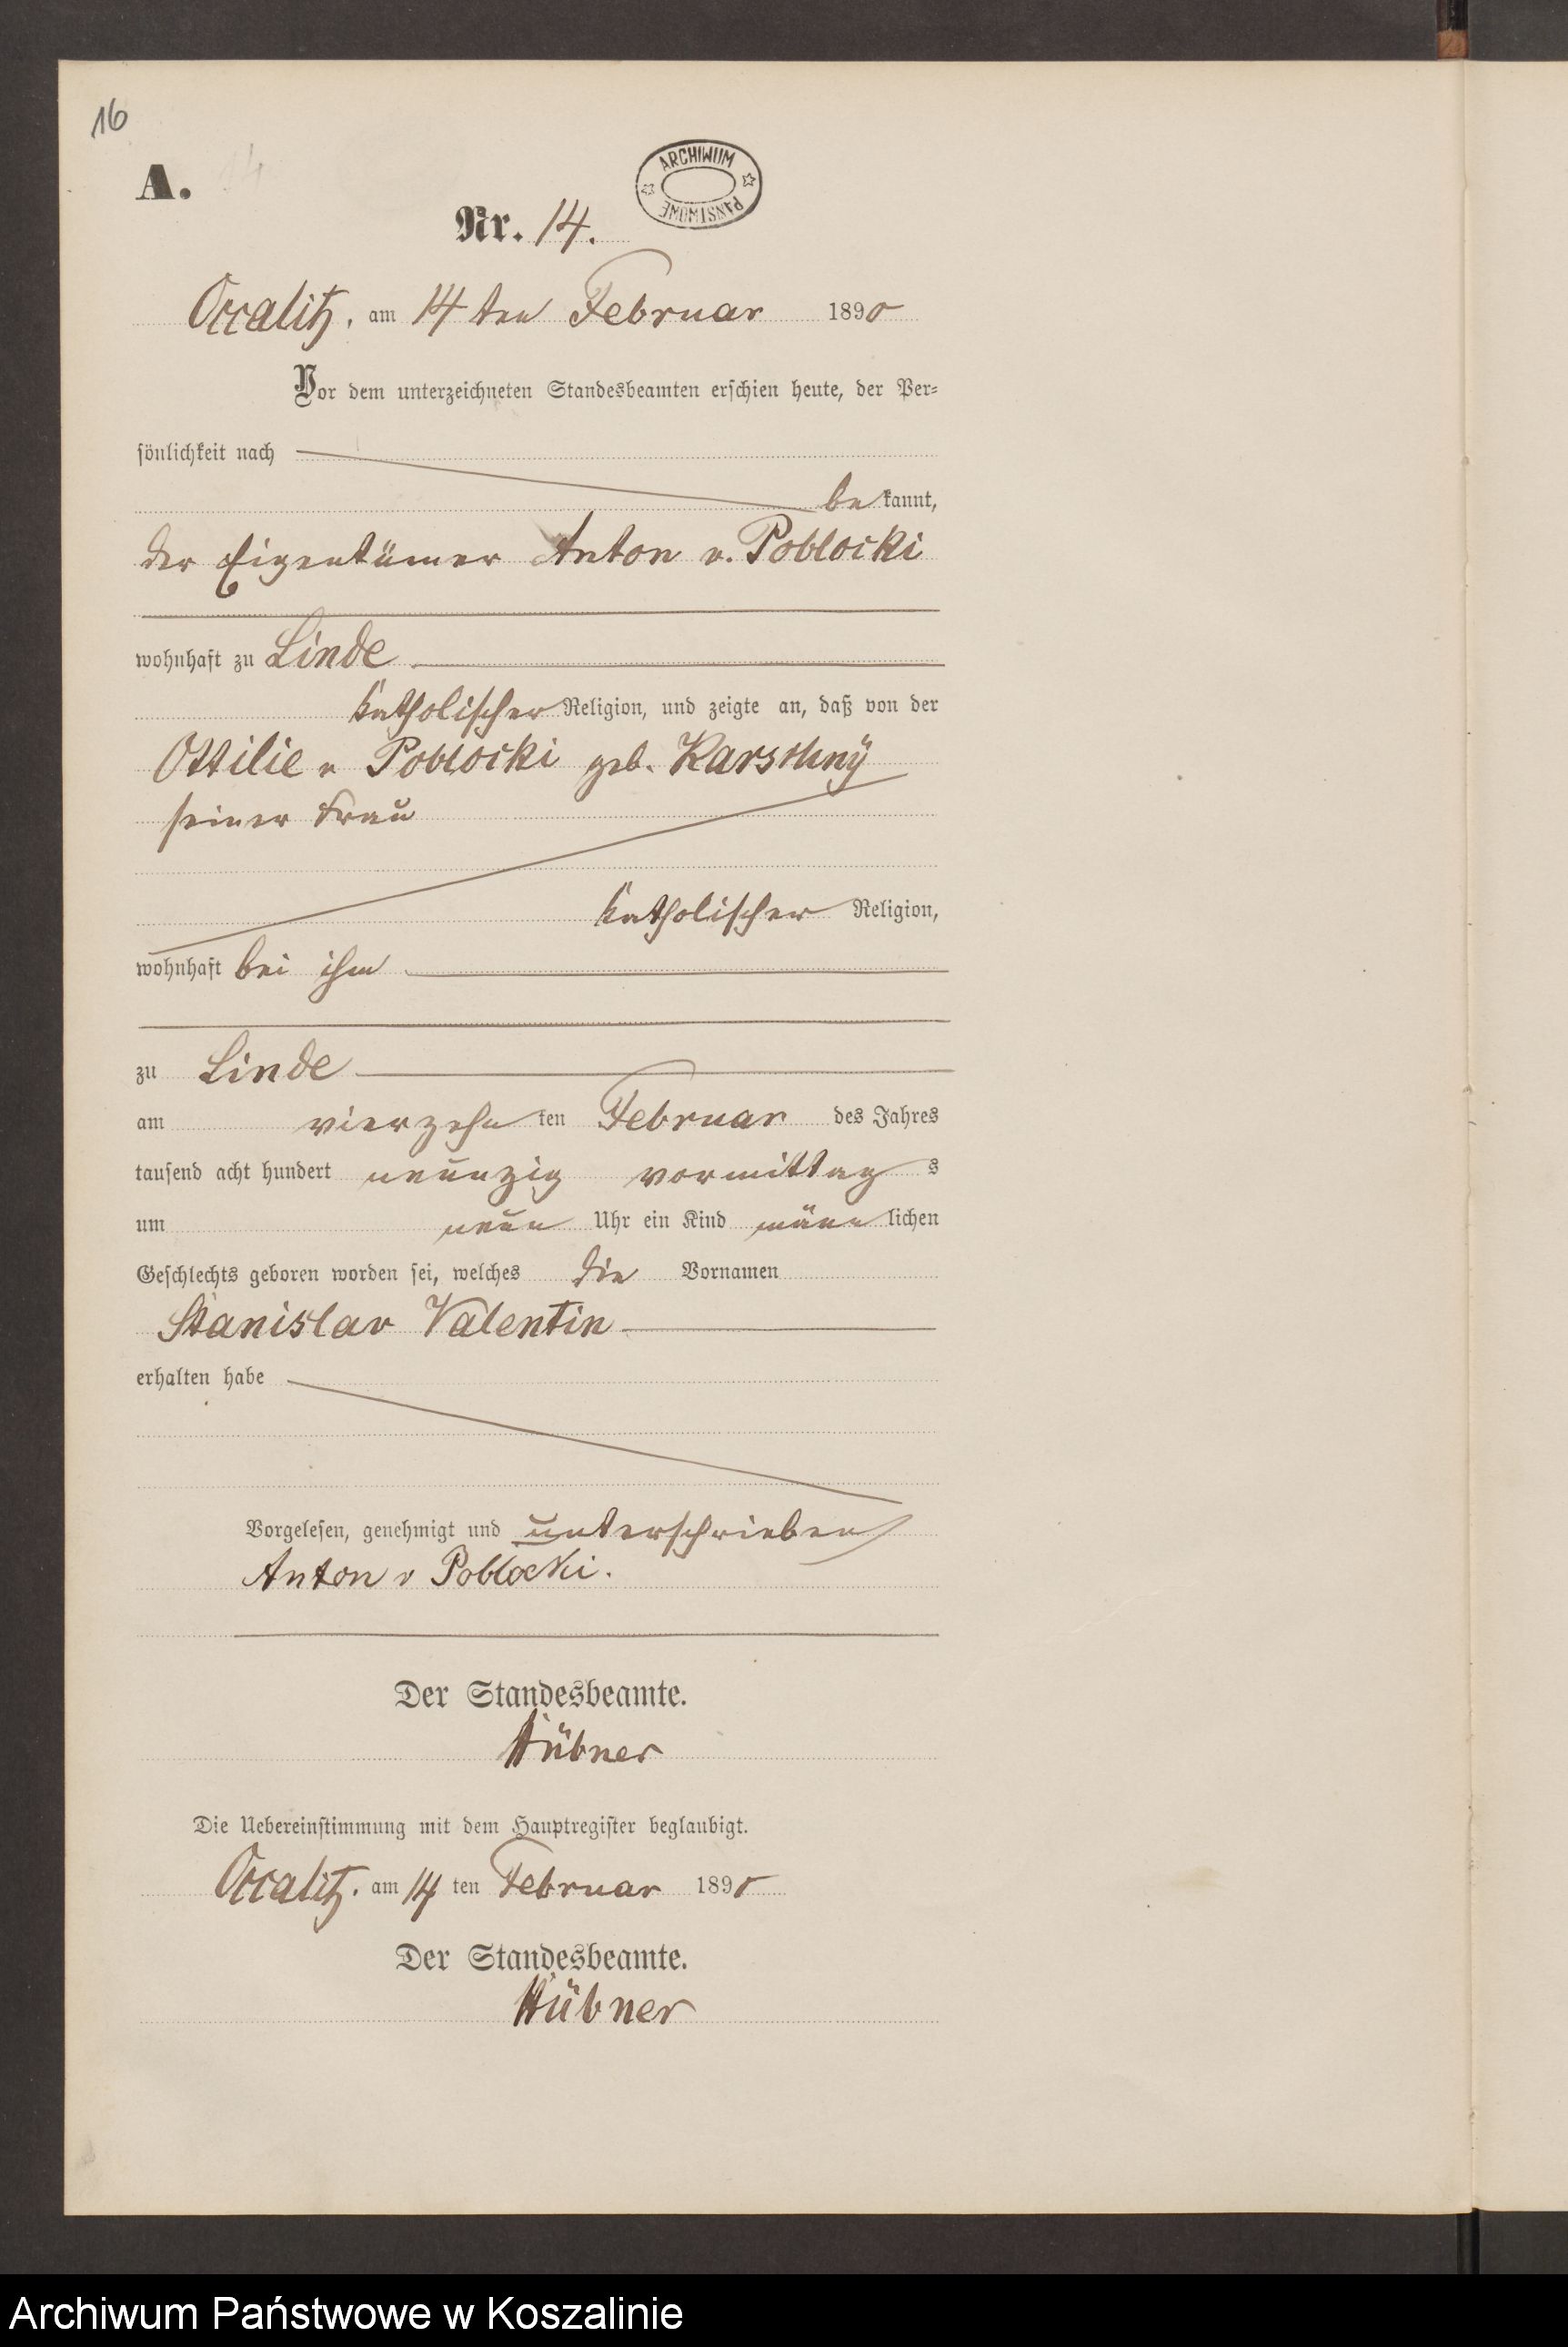 16
A.
ARCHIWUM
PAŃSTWOWE
Nr. 14.
Occalitz, am 14ten Februar 1890
Vor dem unterzeichneten Standesbeamten erschien heute, der Per-
sönlichkeit nach
bekannt,
der Eigentümer Anton v. Poblocki
wohnhaft zu Linde
katholischer Religion, und zeigte an, daß von der
Ottilie v Poblocki geb.
seiner Frau
katholischer Religion,
wohnhaft bei ihm
zu Linde
am vierzehnten Februar des Jahres
tausend acht hundert neunzig vormittags
um neun Uhr ein Kind männlichen
Geschlechts geboren worden sei, welches die Vornamen
Stanislav Valentin
erhalten habe
Vorgelesen, genehmigt und unterschrieben
Anton v Poblocki.
Der Standesbeamte.
Hübner
Die Uebereinstimmung mit dem Hauptregister beglaubigt.
Occalitz, am 14ten Februar 1890
Der Standesbeamte.
Hübner
Archiwum Państwowe w Koszalinie